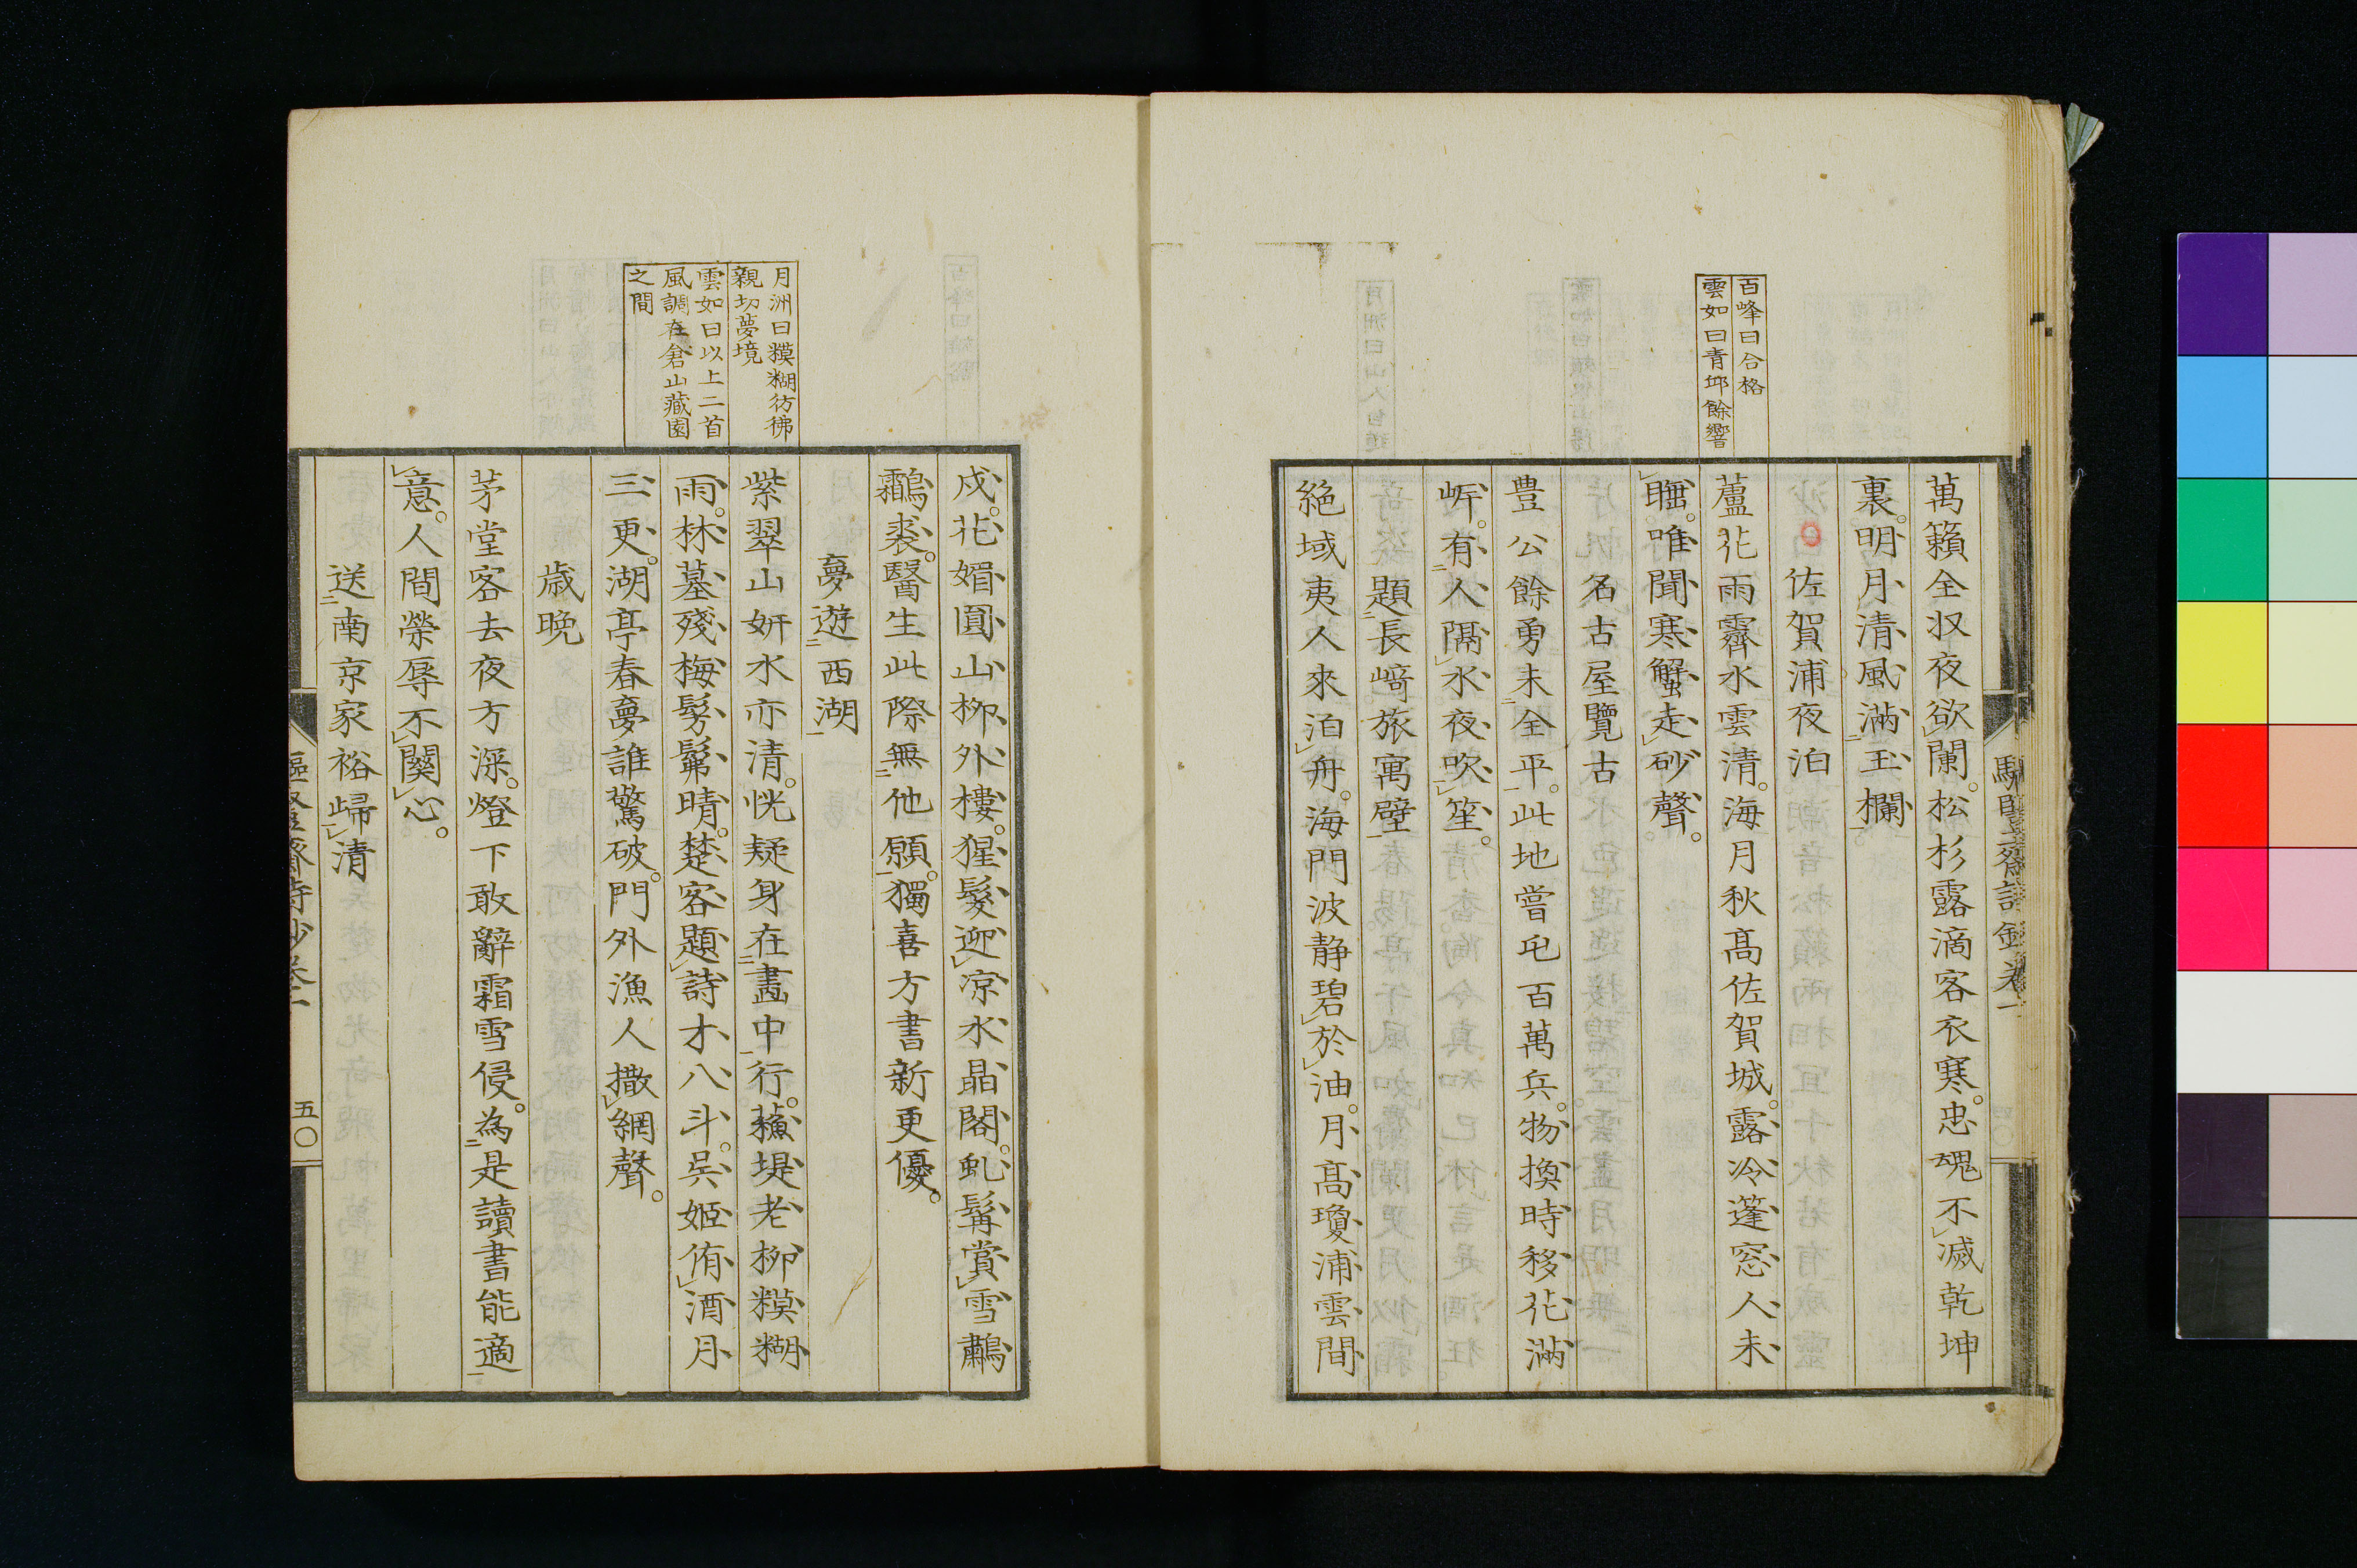 百峰曰合格
雲如曰青邱餘響
萬籟全収夜欲闌。松杉露滴客衣寒。忠魂不滅乾坤
裏。明月清風滿玉欄。
佐賀浦夜泊
蘆花雨霽水雲清。海月秋高佐賀城。露冷蓬窓人未
眠。唯聞寒蟹走砂聲。
名古屋覽古
豊公餘勇未全平。此地嘗屯百萬兵。物換時移花滿
岍。有人隔水夜吹笙。
題長﨑旅寓壁
絶域夷人來泊舟。海門波静碧於油。月高瓊浦雲間
月洲曰糢糊彷彿
親切夢境
雲如曰以上二首
風調在倉山藏園
之間
戍。花媚圓山柳外樓。猩髮迎凉水晶閣。虬髯賞雪鷫
鸘裘。醫生此際無他願。獨喜方書新更優。
夢遊西湖
紫翠山妍水亦清。恍疑身在畫中行。蘓堤老柳糢糊
雨。林墓殘梅髣髴晴。楚客題詩才八斗。吳姬侑酒月
三更。湖亭春夢誰驚破。門外漁人撒網聲。
歳晩
茅堂客去夜方深。燈下敢辭霜雪侵。為是讀書能適
意。人間榮辱不關心。
送南京家裕歸清
五〇